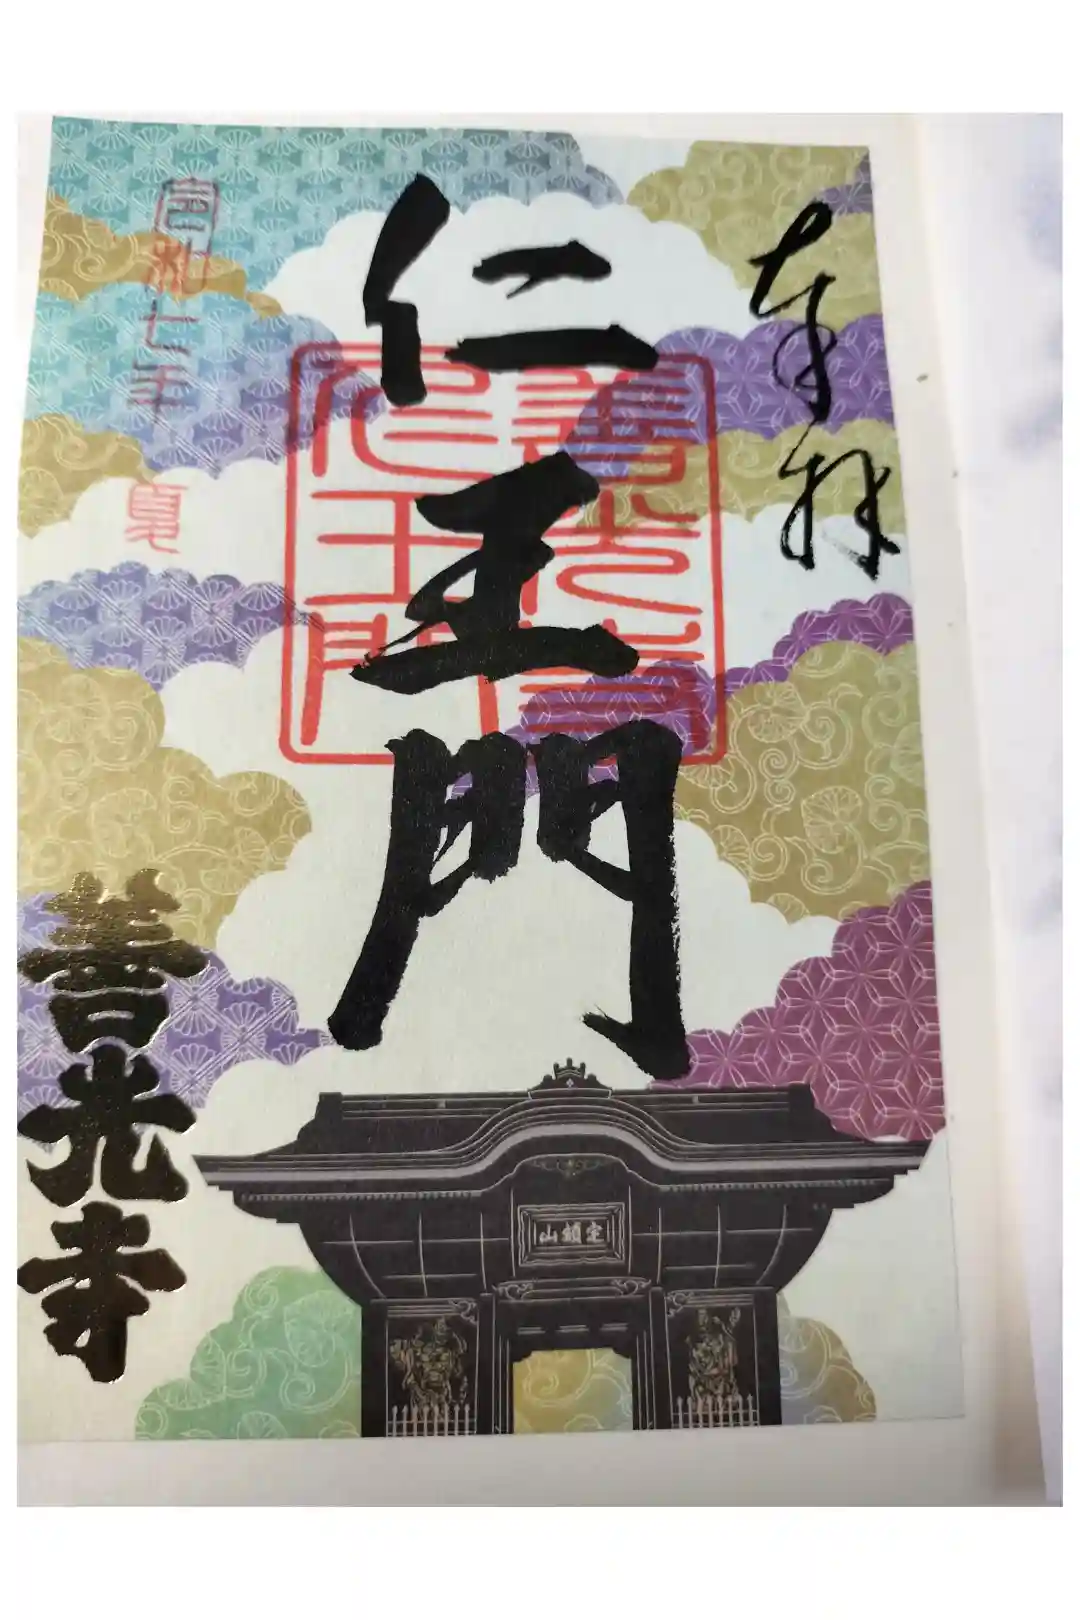 奉拝
仁王門
善光寺
仁王門
令和七年
善光寺
定額山